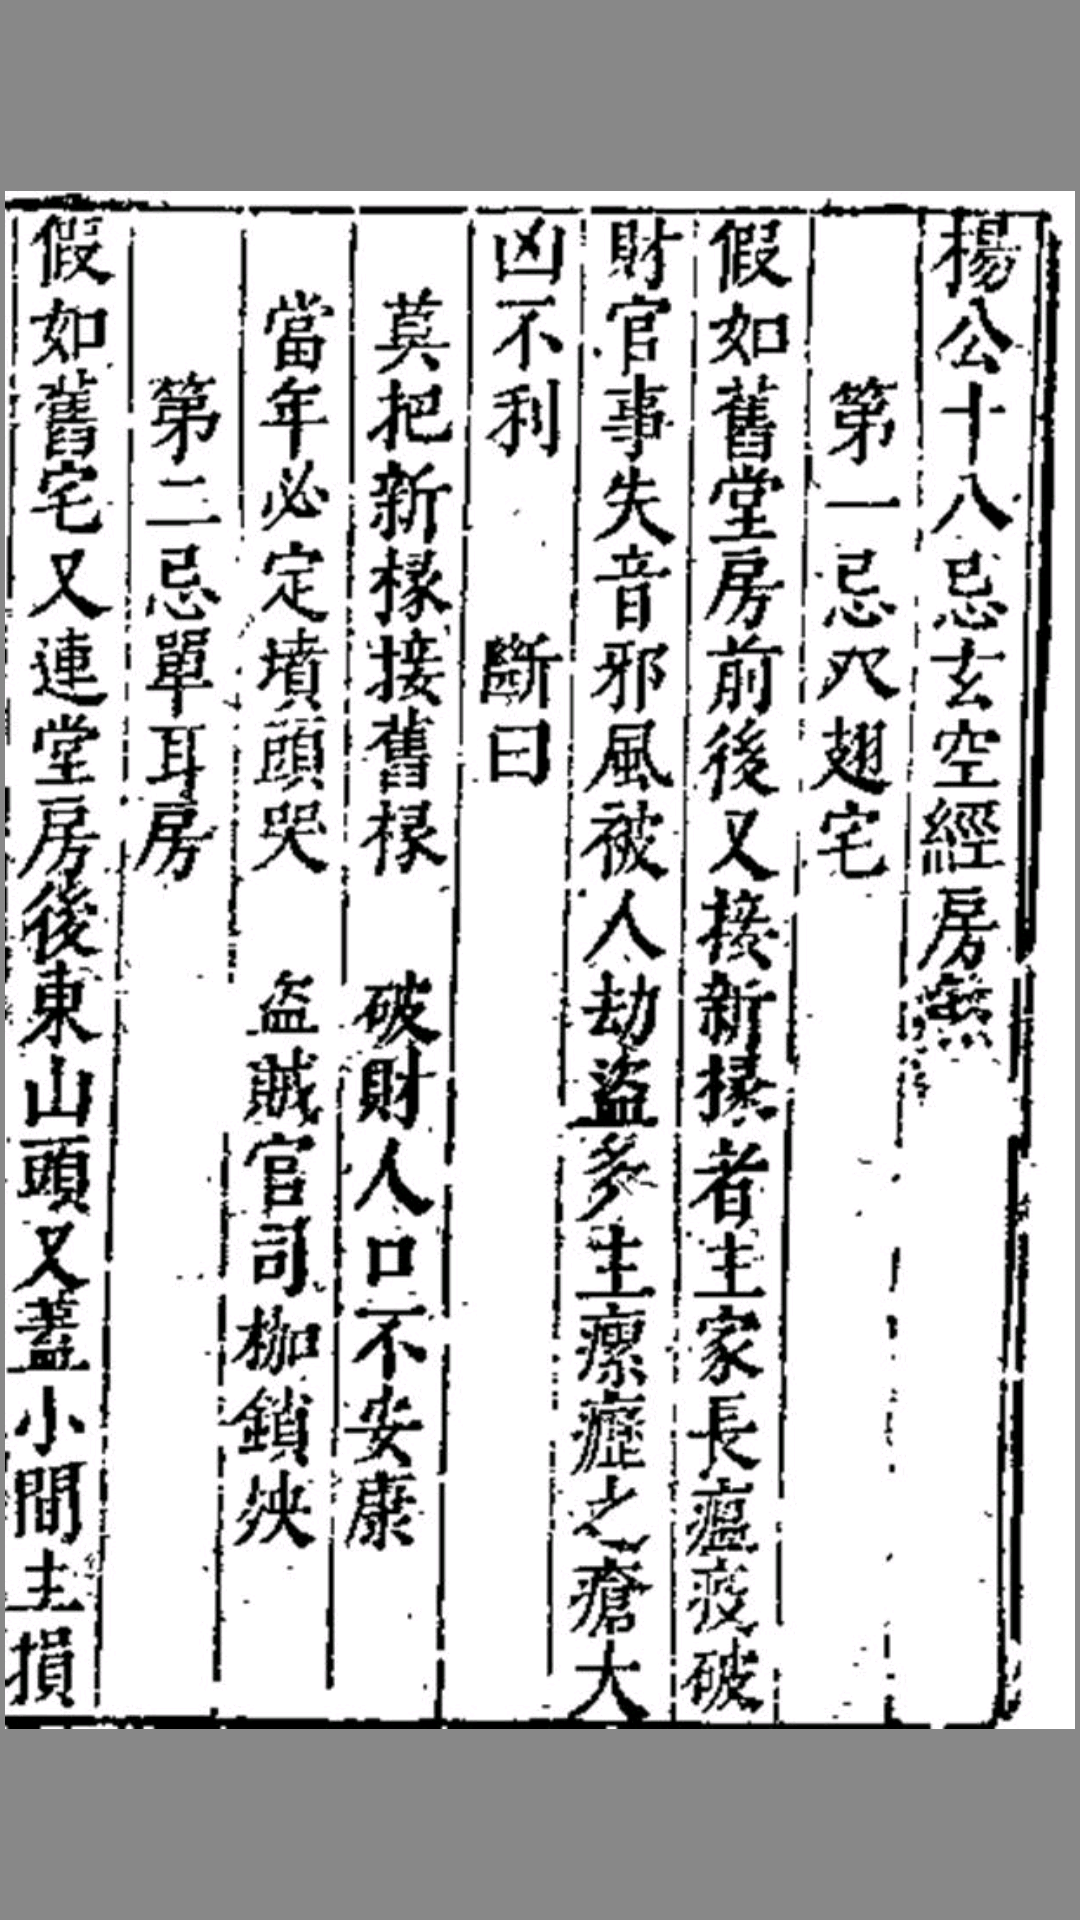 楊公十八忌玄空經房煞
第一忌八翅宅
假如舊堂房前後又接新椽者主家長瘟疫破
財官事失音邪風被人劫盜多主瘰癧之瘡大
凶不利 斷曰
莫把新椽接舊椽 破財人口不安康
當年必定墳頭哭 盜賊官司枷鎖殃
第二忌單耳房
假如舊宅又連堂房後東山頭又蓋小間主損